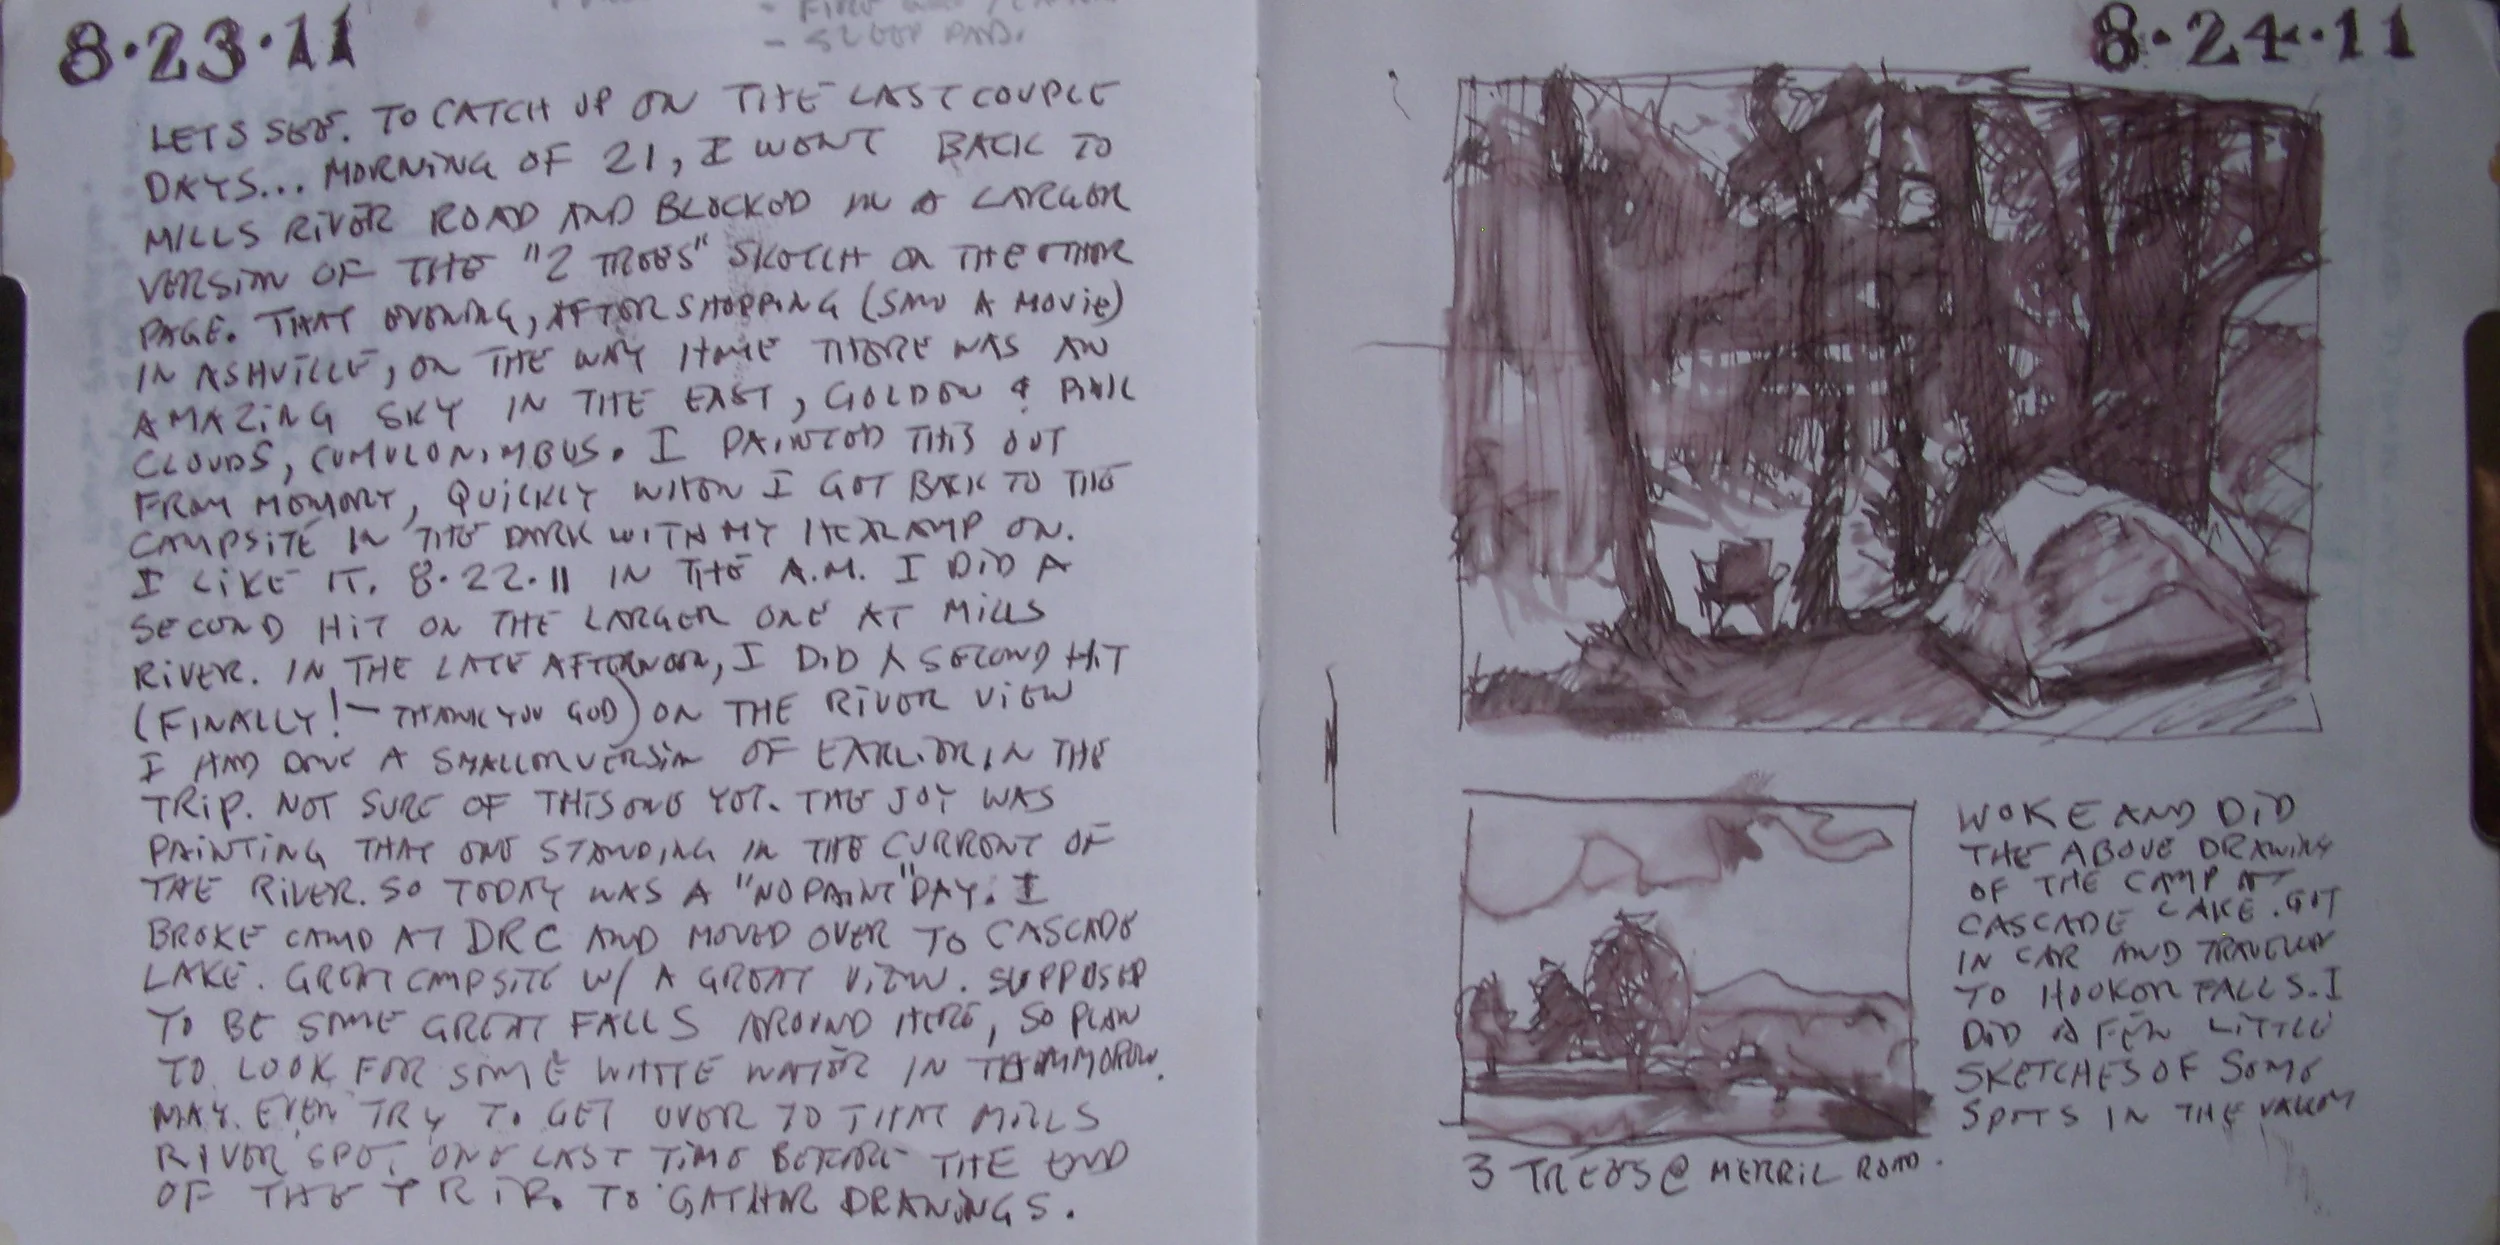 8.23.11
- SLEEP PAD.
LETS SEE. TO CATCH UP ON THE LAST COUPLE
DAYS... MORNING OF 21, I WENT BACK TO
MILLS RIVER ROAD AND BLOCKED IN A LARGER
VERSION OF THE "2 TREES" SKETCH ON THE OTHER
PAGE. THAT EVENING, AFTER SHOPPING (SAW A MOVIE)
IN ASHVILLE, ON THE WAY HOME THERE WAS AN
AMAZING SKY IN THE EAST, GOLDEN & PINK
CLOUDS, CUMULONIMBUS. I PAINTED THIS OUT
FROM MEMORY, QUICKLY WHEN I GOT BACK TO THE
CAMPSITE IN THE DARK WITH MY ON.
I LIKE IT. 8.22.11 IN THE A.M. I DID A
SECOND HIT ON THE LARGER ONE AT MILLS
RIVER. IN THE LATE AFTERNOON, I DID A SECOND HIT
(FINALLY! - THANK YOU GOD) ON THE RIVER VIEW
I HAD DONE A SMALLER VERSION OF EARLIER IN THE
TRIP. NOT SURE OF THIS ONE YET. THE JOY WAS
PAINTING THAT ONE STANDING IN THE CURRENT OF
THE RIVER. SO TODAY WAS A "NO PAINT" DAY. I
BROKE CAMP AT DRC AND MOVED OVER TO CASCADE
LAKE. GREAT CAMPSITE W/ A GREAT VIEW. SUPPOSED
TO BE SOME GREAT FALLS AROUND HERE, SO PLAN
TO LOOK FOR SOME WHITE WATER IN TOMMOROW.
MAY EVEN TRY TO GET OVER TO THAT MILLS
RIVER SPOT ONE LAST TIME BEFORE THE END
OF THE TRIP. TO GATHER DRAWINGS.
8.24.11
WOKE AND DID
THE ABOVE DRAWING
OF THE CAMP AT
CASCADE LAKE. GOT
IN CAR AND TRAVELED
TO HOOKER FALLS. I
DID A FEW LITTLE
SKETCHES OF SOME
SPOTS IN THE VALLEY
3 TREES @ MERRIL ROAD.